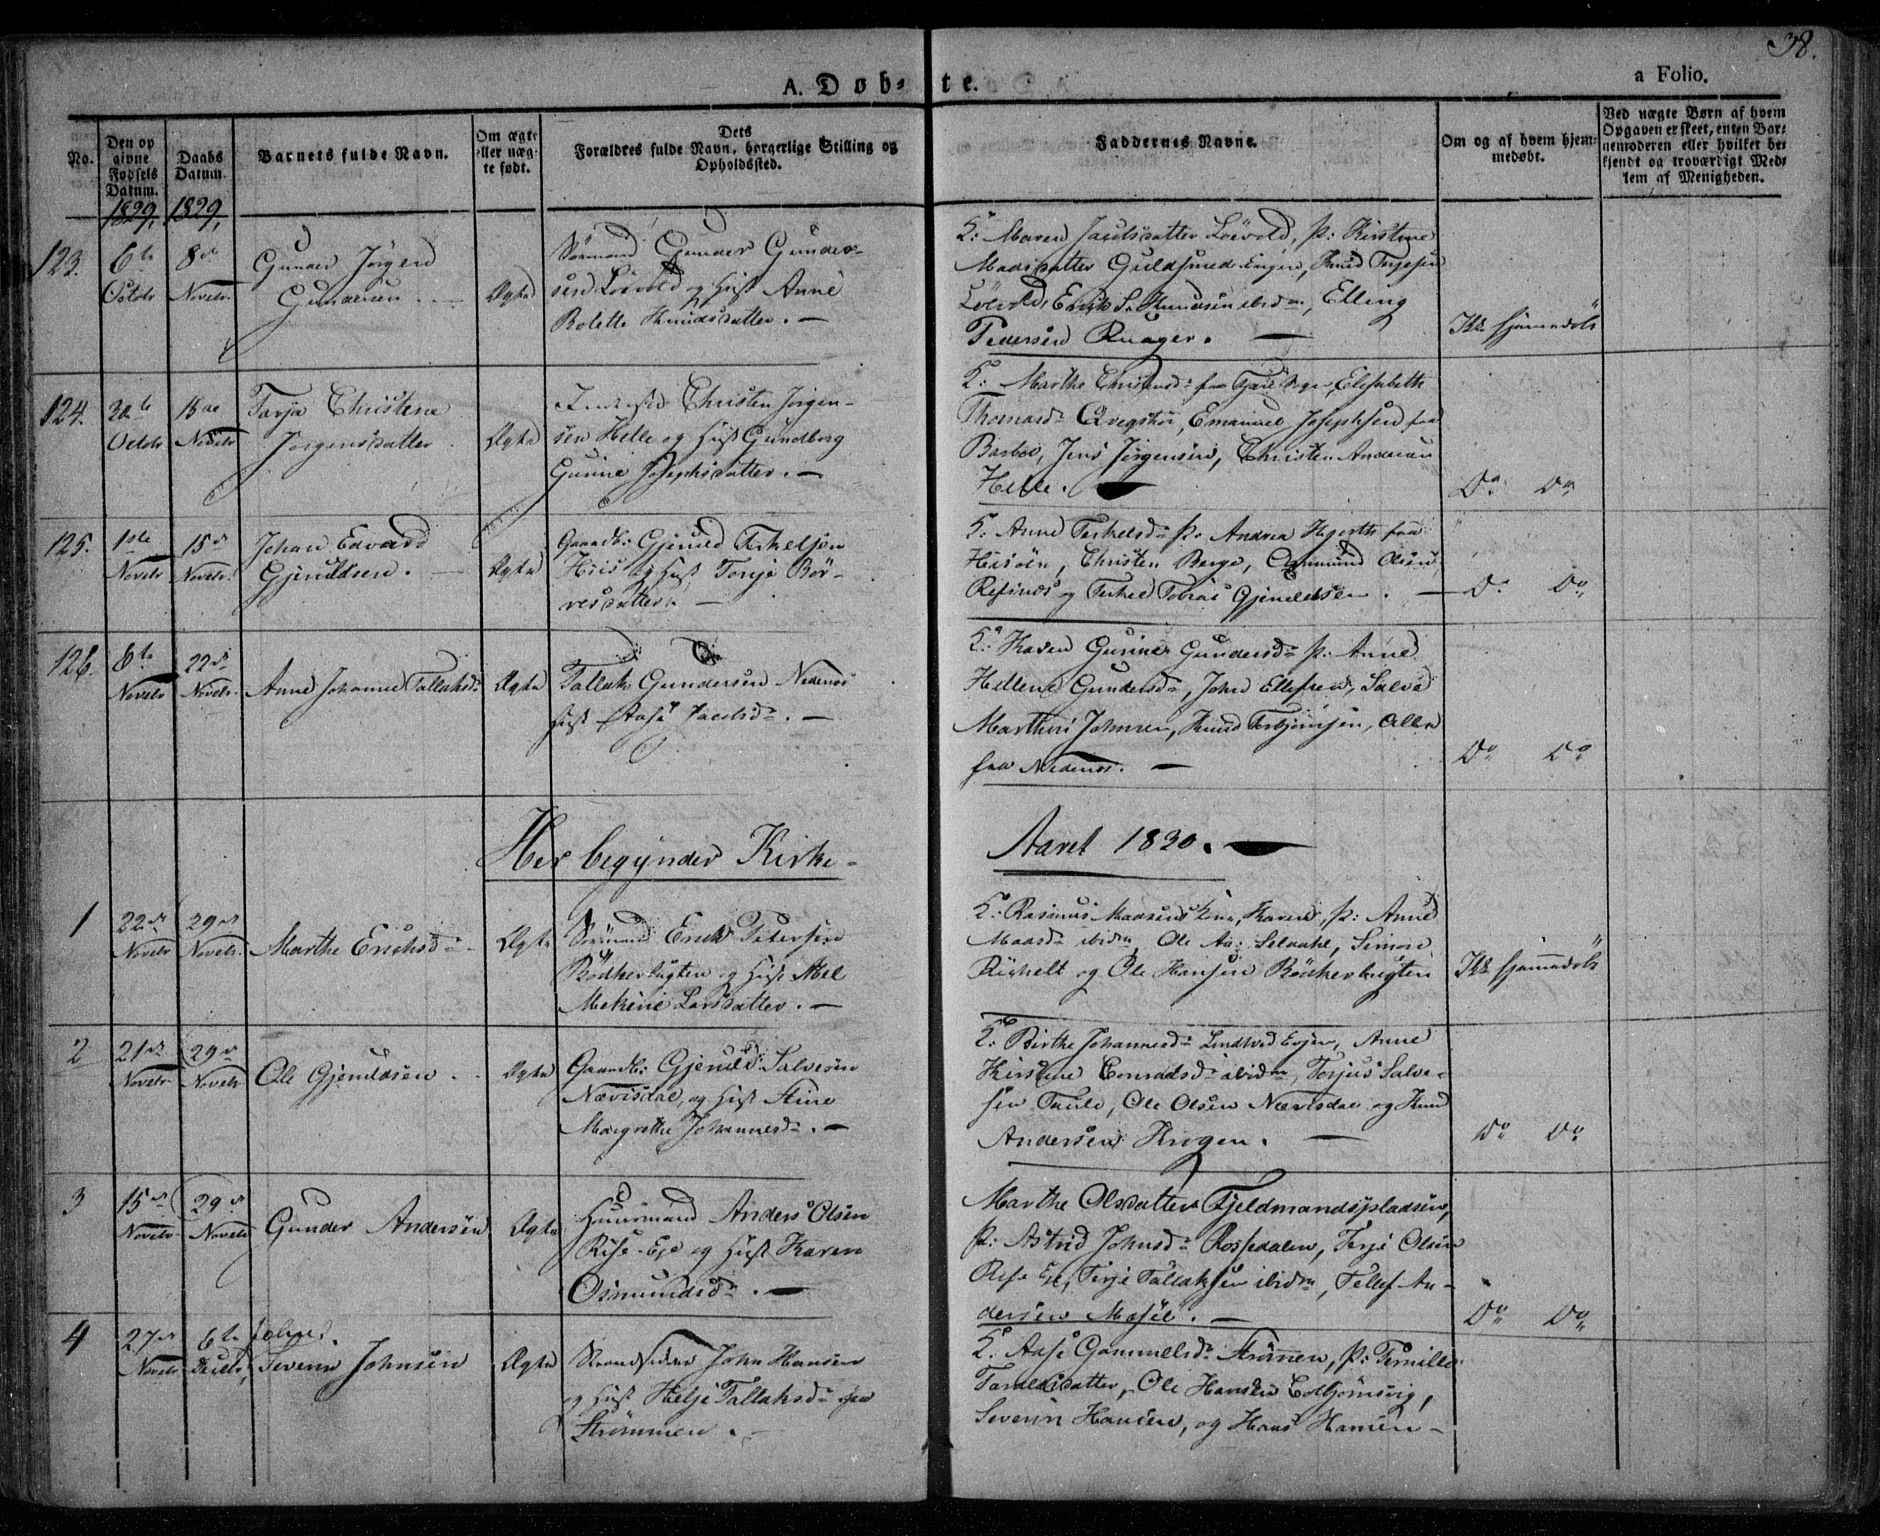 38.
A. Døb- te.
a Folio.
No.
Den op
givne
Fødsels
Datum.
Daabs
Datum.
Barnets fulde Navn.
Om ægte
eller uæg-
te født.
Dets
Forældres fulde Navn, borgerlige Stilling og
Opholdssted.
Faddernes Navne.
Om og af hvem hjem-
medøbt.
Ved uægte Børn af hvem
Opgaven er skeet, enten Bar-
nemoderen eller hvilket be-
kjendt og troværdigt Med-
lem af Menigheden.
1829, 1829,
123. 6te 8de
Octobr Novebr.
Gunder Jørgen
Gundersen
Ægte
Sömand Gunder Gunder-
sen Löevold og Hust Anne
Bolette Knudsdatter. —
Maren Jacobsdatter Löevold, P: Kirstine
Madsdatter Guldsmed-Engen, Knud Terjesen
Löevold, Erik S. Knudsen ibidm, Elling
Pedersen Ruager. —
Ikk hjemmedöbt
124. 15de
Octobr Novebr
Terje Christene
Jörgensdatter
Ægte
Christen Jörgen-
sen Helle og Hust Gundborg
Gurine Josephsdatter. —
Marthe Elisabeth
Thomasd: Emanuel Josephsen fra
Barboe, Jens Jörgensen, Christen Andersen
Helle. —
Do Do
125. 1ste 15de
Novebr Novebr.
Johan Edvard
Gjeruldsen.
Ægte
Gaardb: Gjeruld Terkelsen
His og Hust Terje Bör-
resdatter. —
Anne Terkelsd: P: Andrea Hjorth fra
Hisöen, Christen Berge, Osmund Olsen
Refsnes og Terkel Tobias Gjeruldsen. —
Do Do
126. 8de 22de
Novebr Novebr.
Anne Johanne Tallaksd:
Ægte
Tallak Gundersen Nedenes
Hust Aase Jacobsd:. —
Karen Gurine Gundersd: P: Anne
Hellene Gundersd:, John Ellefsen, Salve
Marthin Johnsen, Knud Torbjörnsen, Alle
fra Nedenes. —
Do Do
Her begynder Kirke-
Aaret 1830. —
1 22de 29de
Novebr Novebr.
Marthe Eriksd:
Ægte
Sömand Erik Petersen
Bödkerbugten og Hust Abel
Mekine Larsdatter. —
Rasmus Madsens Kone, Karen, P: Anne
Madsd: ibidm, Ole Aa: Selaahl, Simon
Righelt og Ole Hansen Bödkerbugten
Ikk hjemmedöbt
2 21de 29de
Novebr Novebr
Ole Gjeruldsen
Ægte
Gaardb: Gjeruld Salvesen
Nævisdal, og Hust Stine
Margrethe Johannesd:. —
Birthe Johannesd: Anne
Kirstine Conradsd: ibidm, Terjus Salve-
sen Ole Olsen Nævisdal og Knud
Andersen Krogen. —
Do Do
3 15de 29de
Novebr Novebr
Gunder Andersen
Ægte
Huusmand Anders Olsen
Rise-Eje og Hust Karen
Osmundsd:. —
Marthe Olsdatter Fjeldmandspladsen,
P: Astrid Johnsd: Rossedalen, Terje Olsen
Rise Eje, Terje Tallaksen ibidm, Tellef An-
dersen Mosele. —
Do Do
4 27de 6te
Novebr Decbr,
Johns.
Severin Johnsen
Ægte
Strandsidder John Hansen
og Hust Helje Tallaksd: fra
Strömmen.
Aase Gammelsd: Strömmen, P: Pernille
Ole Hansen Colbjörnsvig,
Severin Hansen, og Hans Hansen -